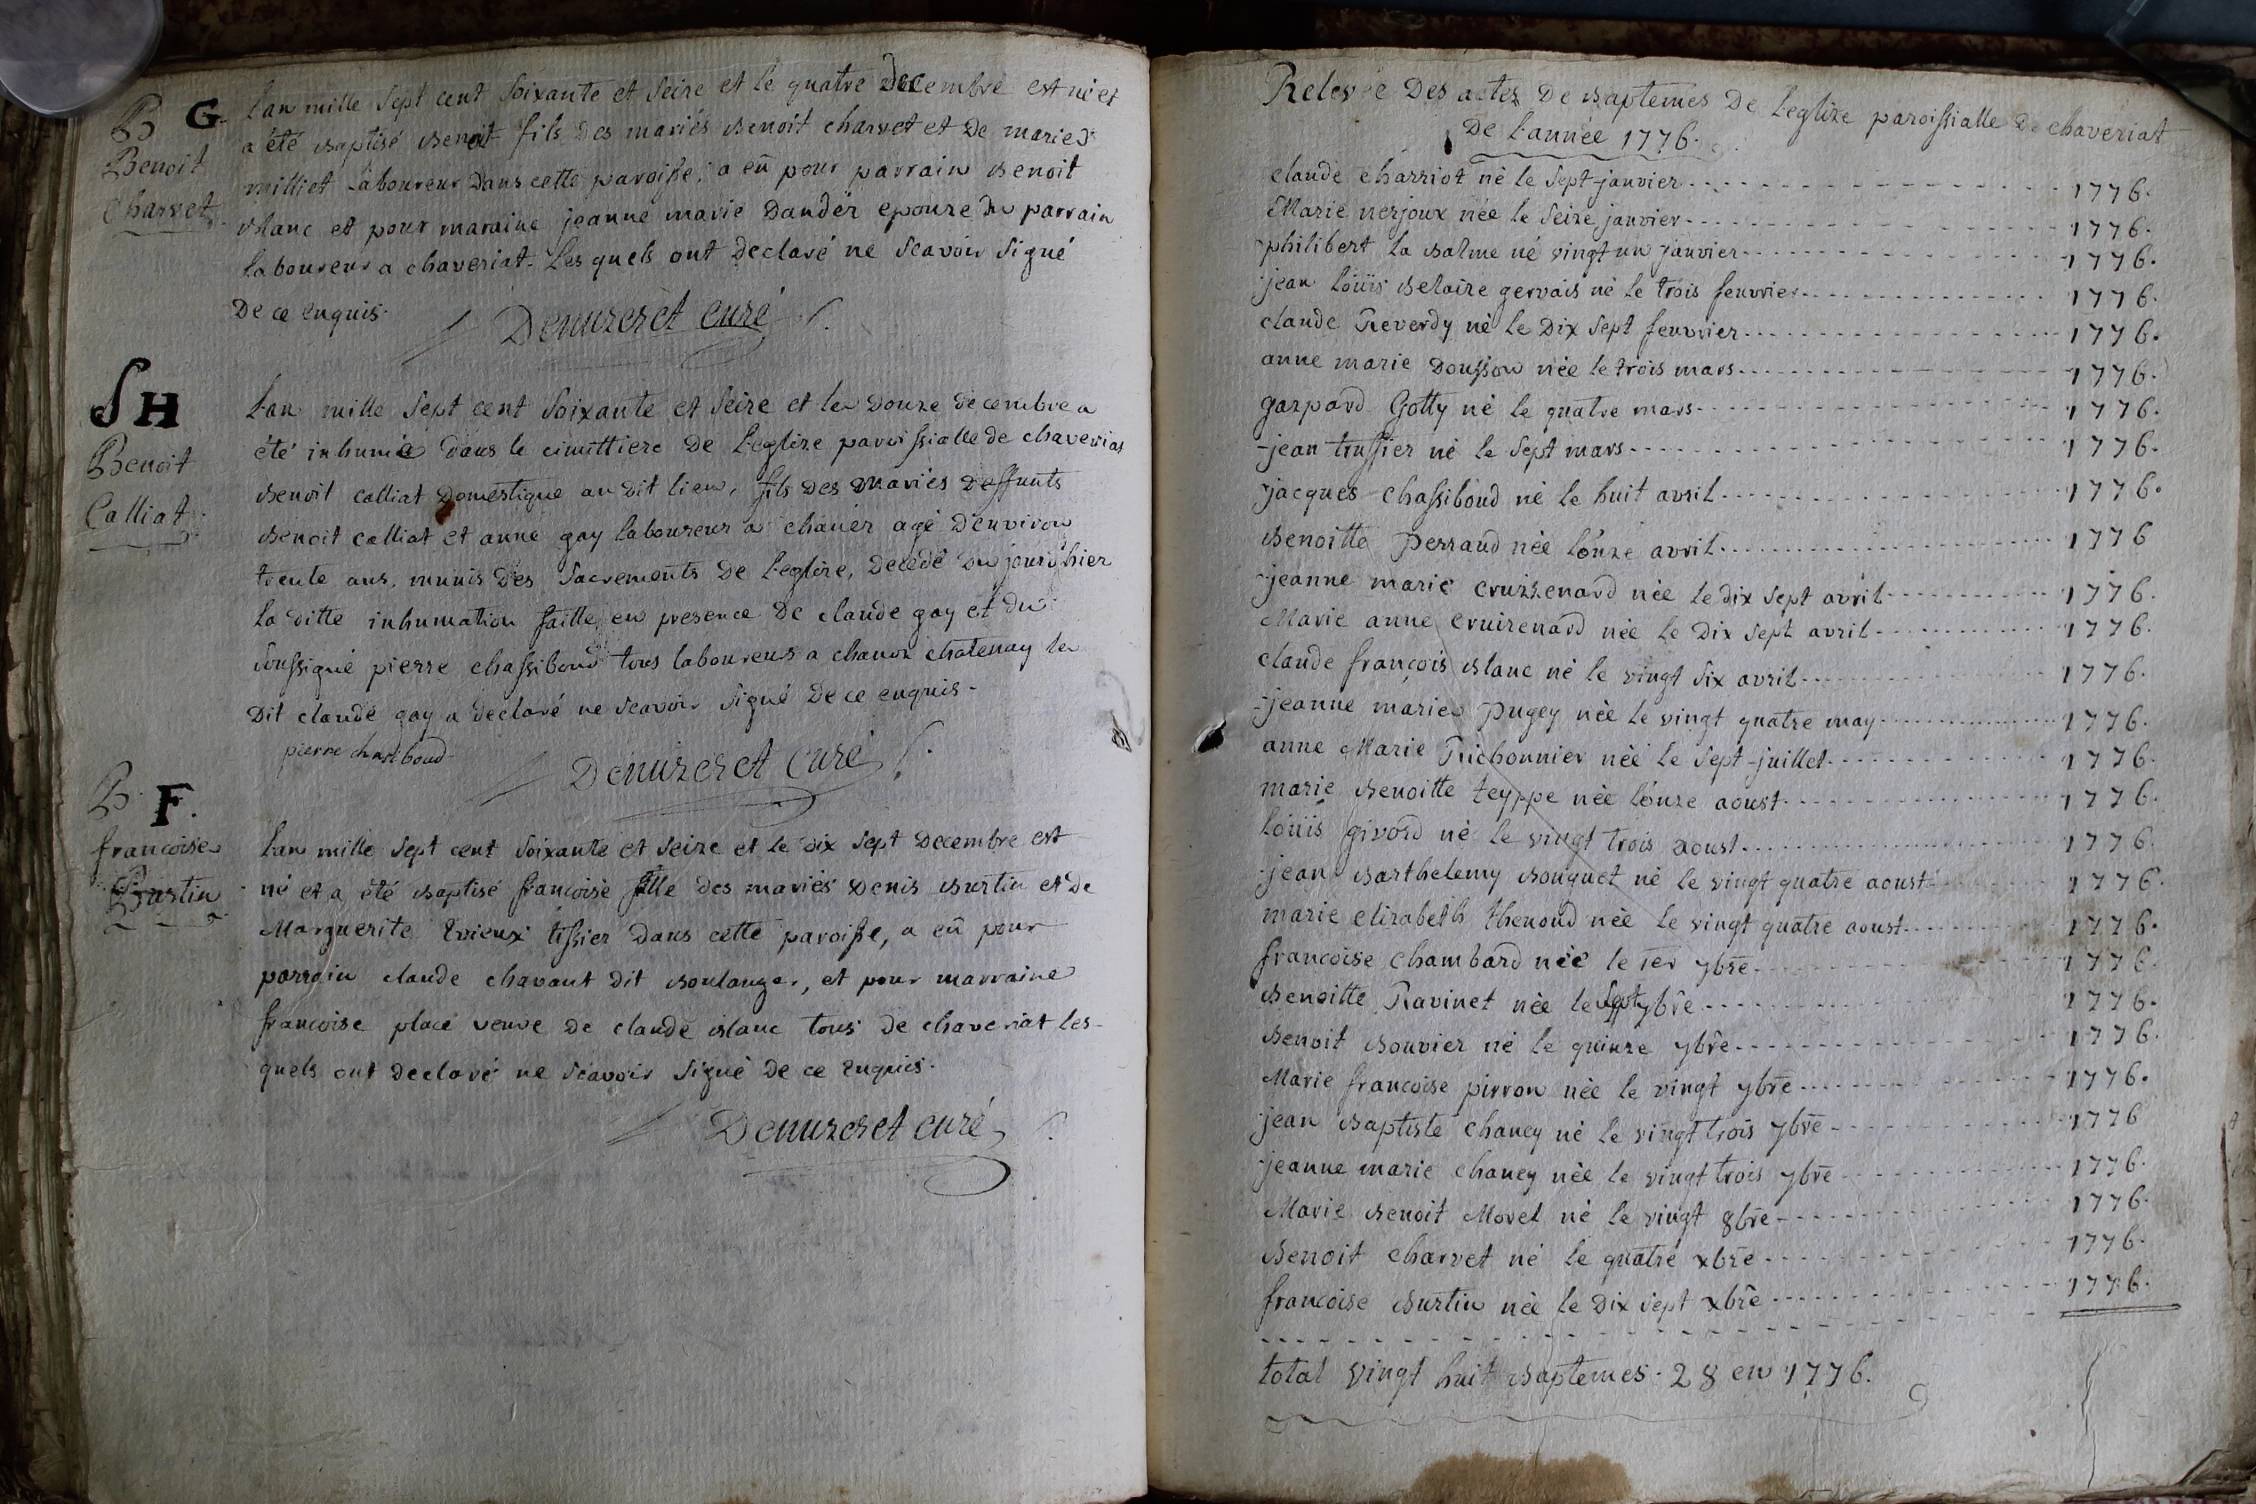 B G.
Benoit
Charvet
L'an mille sept cent soixante et seize et le quatre Decembre est né et
a été baptisé benoit fils des mariés benoit charvet et de marie
milliet laboureur dans cette paroisse; a eû pour parrain benoit
blanc et pour maraine jeanne marie Dandér epouze du parrain
laboureur a chaveriat. Les quels ont declaré ne scavoir signé
De ce enquis.
Denuzeret curé
SH
Benoit
Calliat
L'an mille sept cent soixante et seize et le douze decembre a
été inhumée dans le cimittiere de l'eglize paroissialle de chaveriat
benoit calliat domestique au dit lieu, fils des mariés deffunts
benoit calliat et anne gay laboureur a chanéz agé d'environ
trente ans, munis des sacrements de l'eglize, decedé du jour d'hier
la ditte inhumation faitte en presence de claude gay et du
soussigné pierre chassiboud tous laboureurs a chanoz chatenay le
dit claude gay a declaré ne scavoir signé de ce enquis.
pierre chasiboud
Denuzeret curé
B. F.
francoise
Burtin
L'an mille sept cent soixante et seize et le dix sept decembre est
né et a été baptisé françoise fille des mariés denis burtin et de
Marguerite Vrieux tissier dans cette paroisse, a eû pour
parrain claude chavant dit boulanger, et pour marraine
francoise place veuve de claude blanc tous de chaveriat les-
quels ont declaré ne scavoir signé de ce enquis.
Denuzeret curé
Relevée des actes de baptemes de l'eglize paroissialle de chaveriat
de l'année 1776.
claude charriot né le sept janvier 1776.
Marie nerjoux née le seize janvier 1776.
philibert la balme né vingt un janvier 1776.
jean loüis belaire gervais né le trois feuvrier 1776.
claude Reverdy né le dix sept feuvrier 1776.
anne marie donsson née le trois mars 1776.
gaspard Gotty né le quatre mars 1776.
jean trussier né le sept mars 1776.
jacques chassiboud né le huit avril 1776.
benoitte perraud née l'onze avril 1776
jeanne marie cruizenard née le dix sept avril 1776.
Marie anne cruizenard née le dix sept avril 1776.
claude françois blanc né le vingt six avril 1776.
jeanne marie pugey née le vingt quatre may 1776.
anne Marie Richonnier née le sept juillet 1776.
marie benoitte teyppe née l'onze aoust 1776.
loüis givord né le vingt trois aoust 1776.
jean barthelemy bouquet né le vingt quatre aoust 1776.
marie elizabeth thenoud née le vingt quatre aoust 1776.
francoise chambard née le 1er 7bre 1776.
benoitte Ravinet née le sept 7bre 1776.
benoit bouvier né le quinze 7bre 1776.
Marie francoise pirron née le vingt 7bre 1776.
jean baptiste chaney né le vingt trois 7bre 1776
jeanne marie chaney née le vingt trois 7bre 1776.
Marie benoit Morel né le vingt 8bre 1776.
benoit charvet né le quatre xbre 1776.
francoise burtin née le dix sept xbre 1776.
total vingt huit baptemes. 28 en 1776.